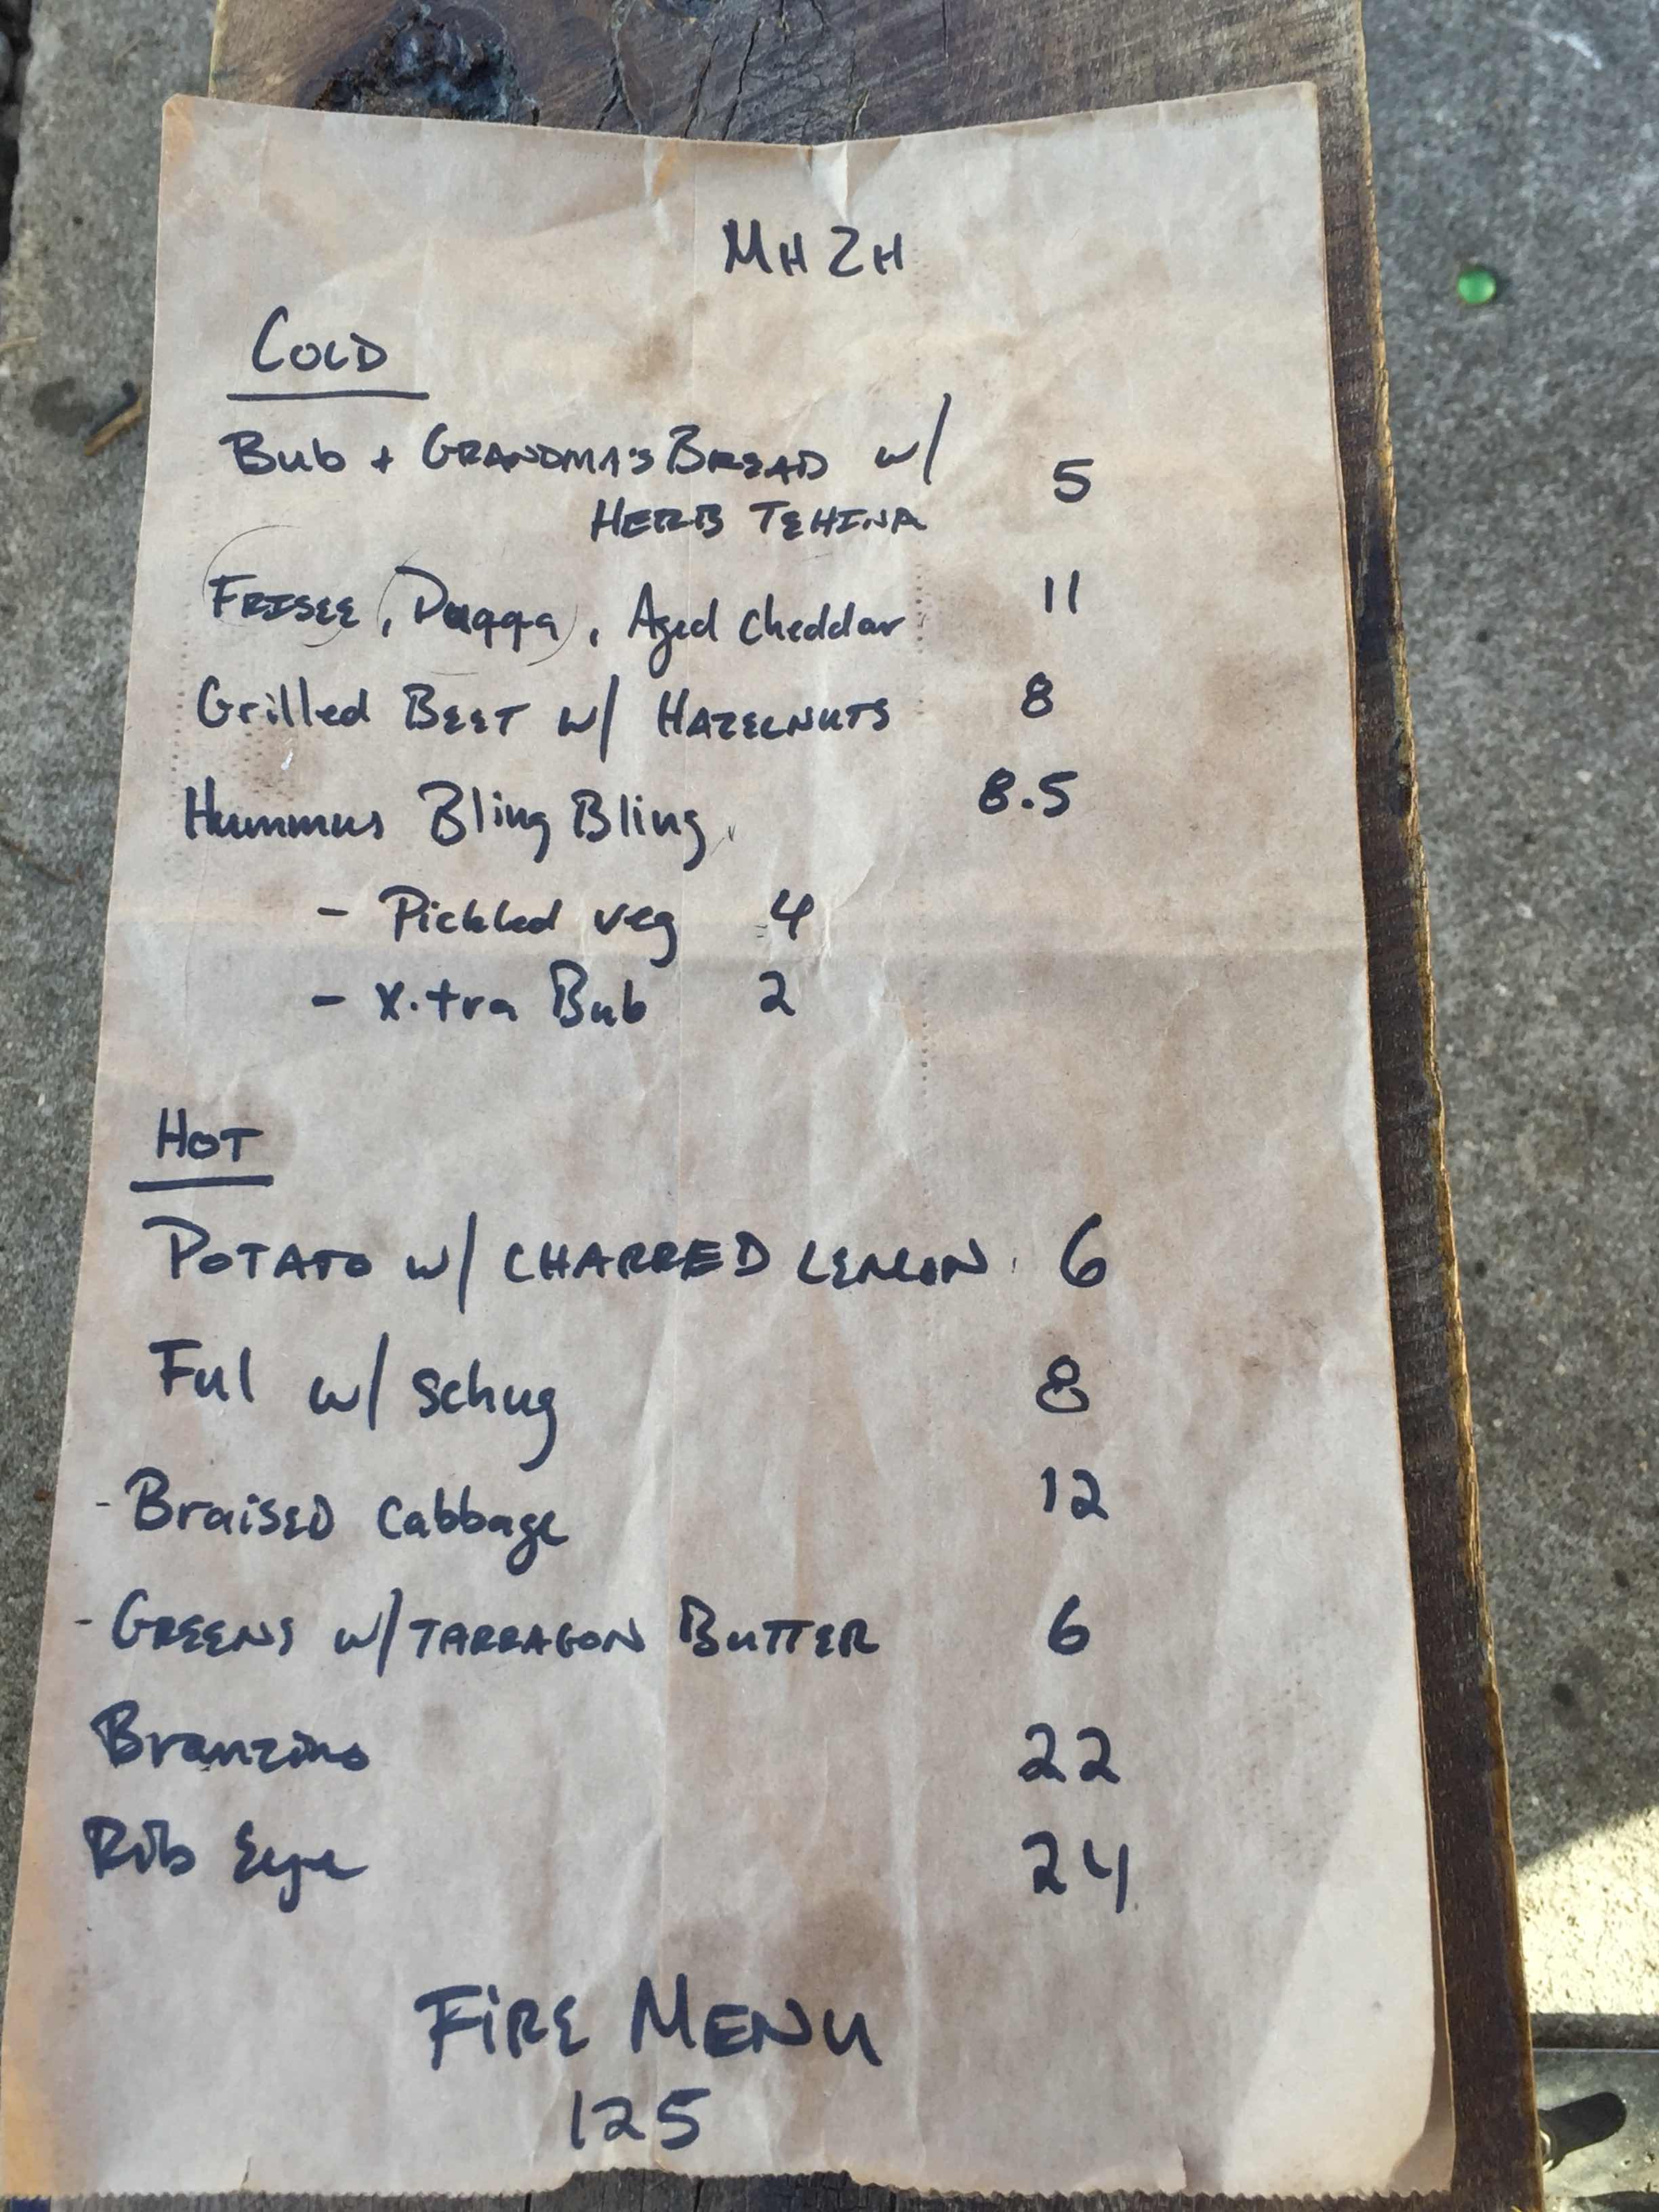 MH ZH
COLD
Bub + GRANDMA'S BREAD w/ 5
HERB TEHINA
FRISEE, Duqqa, Aged cheddar 11
Grilled BEET w/ HAZELNUTS 8
Hummus Bling Bling 8.5
- Pickled veg 4
- X-tra Bub 2
HOT
POTATO w/ CHARRED LEMON 6
Ful w/ schug 8
- BraisED cabbage 12
- GREENS w/ TARRAGON BUTTER 6
Branzino 22
Rib Eye 24
FiRE MENU
125